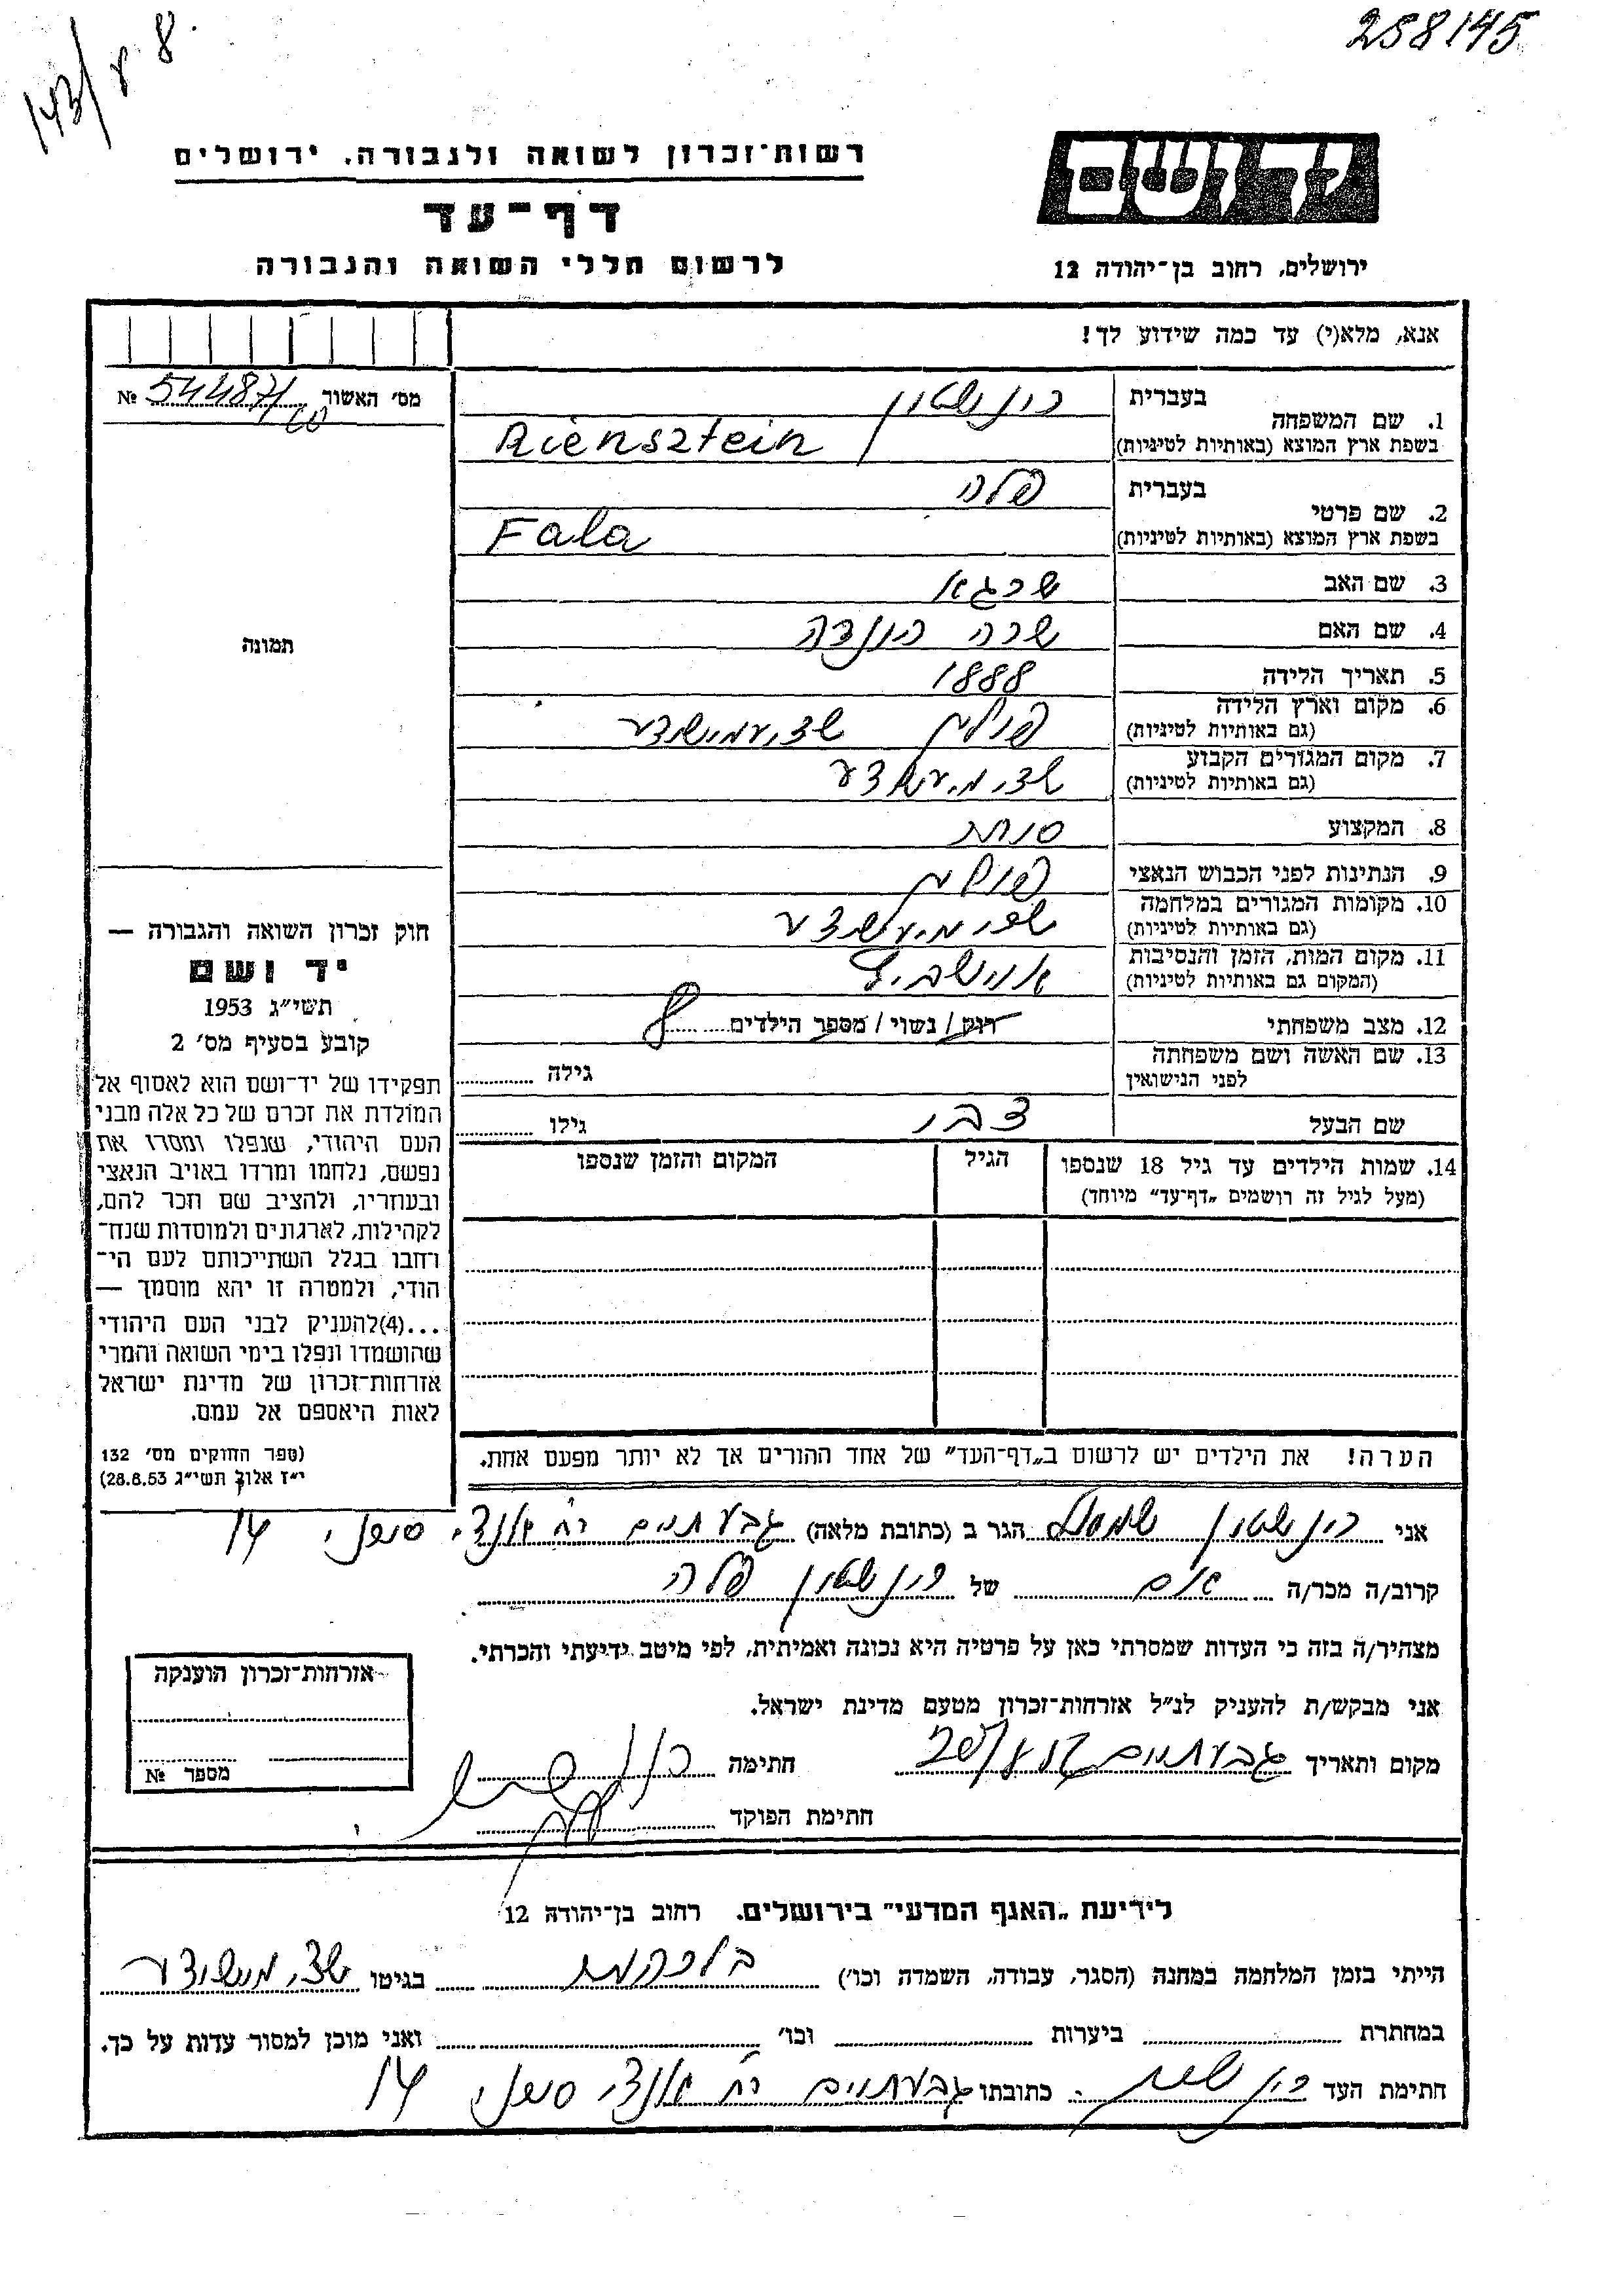 258145
143/ 8 8
רשות־זכרון לשואה ולגבורה, ירושלים
יד ושם
דף־עד
לרשום חללי השואה והגבורה
ירושלים, רחוב בן־יהודה 12
אנא, מלא(י) עד כמה שידוע לך!
מס' האשור 544871/60 №
1. שם המשפחה
בעברית רינשטיין
בשפת ארץ המוצא (באותיות לטיניות) Riensztein
2. שם פרטי
בעברית פלה
בשפת ארץ המוצא (באותיות לטיניות) Fala
3. שם האב שרגא
4. שם האם שרה הינדה
5. תאריך הלידה 1888
6. מקום וארץ הלידה פולין
(גם באותיות לטיניות)
7. מקום המגורים הקבוע
(גם באותיות לטיניות)
8. המקצוע סוחרת
9. הנתינות לפני הכבוש הנאצי פולין
10. מקומות המגורים במלחמה
(גם באותיות לטיניות)
11. מקום המות, הזמן והנסיבות אוישביץ
(המקום גם באותיות לטיניות)
12. מצב משפחתי רווק / נשוי / מספר הילדים 8
13. שם האשה ושם משפחתה
לפני הנישואין
גילה
שם הבעל צבי גילו
תמונה
14. שמות הילדים עד גיל 18 שנספו הגיל המקום והזמן שנספו
(מעל לגיל זה רושמים „דף־עד" מיוחד)
חוק זכרון השואה והגבורה —
יד ושם
תשי"ג 1953
קובע בסעיף מס' 2
תפקידו של יד־ושם הוא לאסוף אל
המולדת את זכרם של כל אלה מבני
העם היהודי, שנפלו ומסרו את
נפשם, נלחמו ומרדו באויב הנאצי
ובעוזריו, ולהציב שם וזכר להם,
לקהילות, לארגונים ולמוסדות שנח־
רבו בגלל השתייכותם לעם הי־
הודי, ולמטרה זו יהא מוסמך —
...(4)להעניק לבני העם היהודי
שהושמדו ונפלו בימי השואה והמרי
אזרחות־זכרון של מדינת ישראל
לאות היאספם אל עמם.
(ספר החוקים מס' 132
י"ז אלול תשי"ג 28.8.53)
הערה! את הילדים יש לרשום ב„דף־העד" של אחד ההורים אך לא יותר מפעם אחת.
אני רינשטיין שמואל הגר ב (כתובת מלאה) גבעתיים רח 14
קרוב/ה מכר/ה אם של רינשטיין פלה
מצהיר/ה בזה כי העדות שמסרתי כאן על פרטיה היא נכונה ואמיתית, לפי מיטב ידיעתי והכרתי.
אני מבקש/ת להעניק לנ"ל אזרחות־זכרון מטעם מדינת ישראל.
מקום ותאריך גבעתיים חתימה
חתימת הפוקד
אזרחות־זכרון הוענקה
מספר №
לידיעת „האגף המדעי" בירושלים. רחוב בן־יהודה 12
הייתי בזמן המלחמה במחנה (הסגר, עבודה, השמדה וכו') בגיטו
במחתרת ביערות וכו' ואני מוכן למסור עדות על כך.
חתימת העד כתובתו גבעתיים רח 14